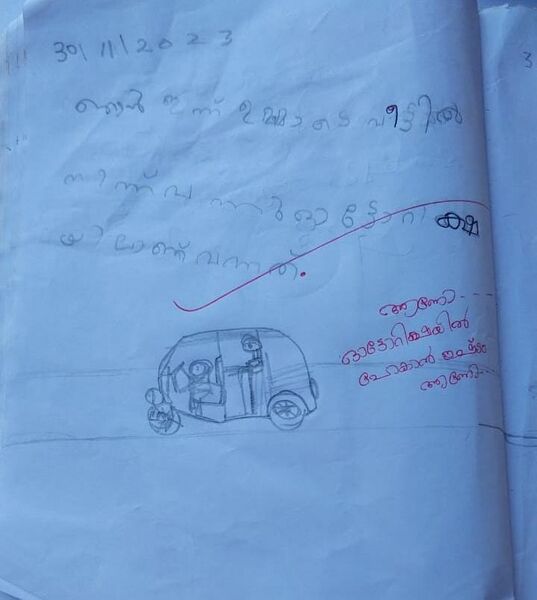 30/11/2023
ഞാൻ ഇന്ന് ഉമ്മാടെ വീട്ടിൽ
നിന്ന് വന്നു ഓട്ടോറിക്ഷ
യിലാണ് വന്നത്.
ആണോ---
ഓട്ടോറിക്ഷയിൽ
പോകാൻ ഇഷ്ടം
ആണോ--
3